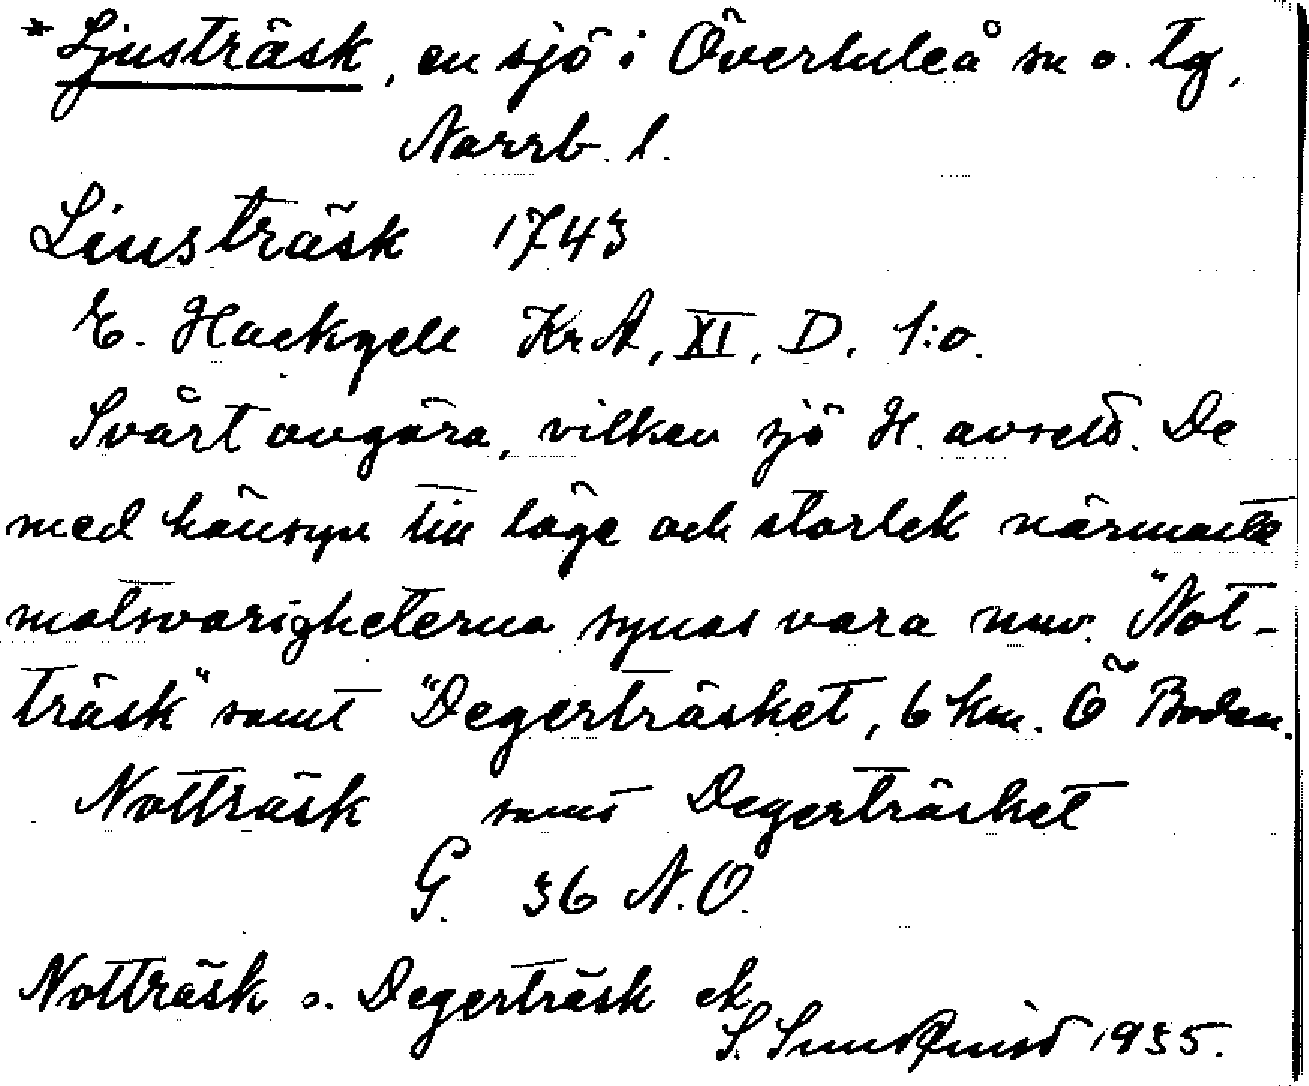 *Ljusträsk, en sjö i Överluleå sn o. tg,
Norrb. l.
Liusträsk 1743
E. Hackzell KrA, XI, D, 1:o.
Svårt avgöra, vilken sjö H. avsett. De
med hänsyn till läge och storlek närmaste
motsvarigheterna synas vara nuv. "Not-
träsk" samt "Degerträsket, 6 km. Ö Boden.
Notträsk samt Degerträsket
G. 36 N.O.
Notträsk o. Degerträsk ek
S. Sundqvist 1935.